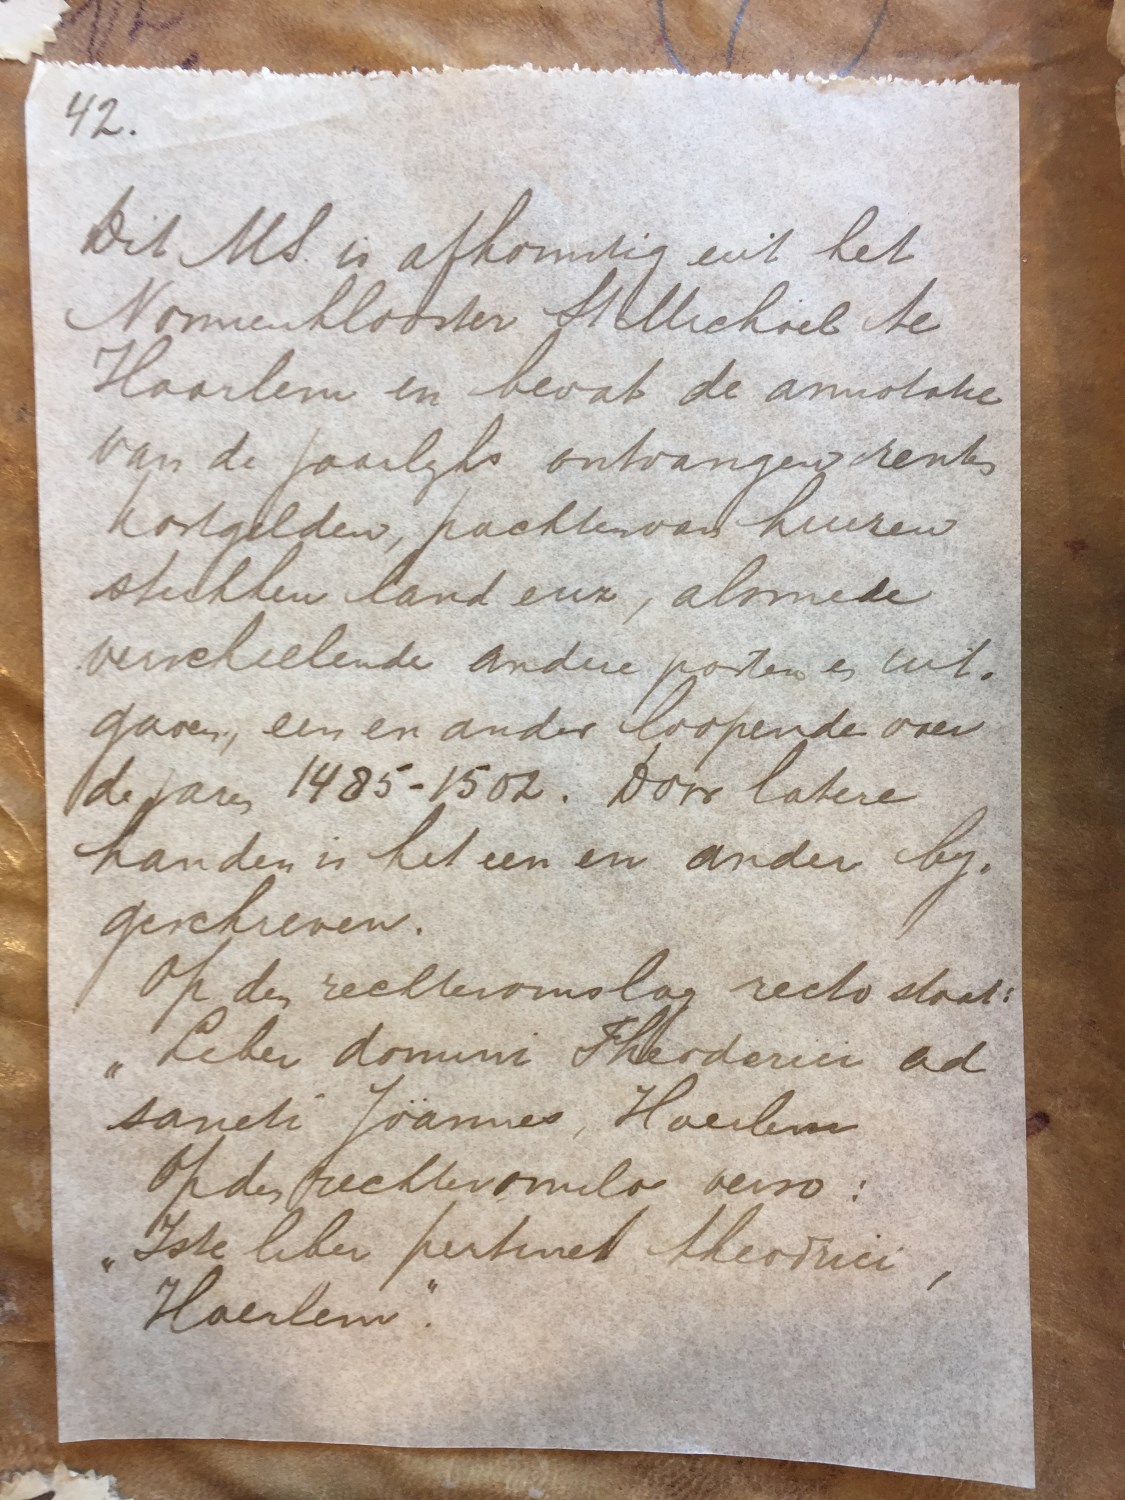 42.
Dit MS. is afkomstig uit het
Nonnenklooster St Michiel te
Haarlem en bevat de annotatie
van de jaarlyks ontvangen renten
kostgelden, pachten van huizen
stukken land enz, alsmede
verschillende andere posten en uit-
gaven, een en ander loopende over
de jaren 1485-1502. Door latere
handen is het een en ander by-
geschreven.
Op den rechteromslag recto staat:
„Liber domini Theoderici ad
sancti Joannes, Haerlem
Op den rechteromslag verso:
„Iste liber pertinet theodrici,
Haerlem".